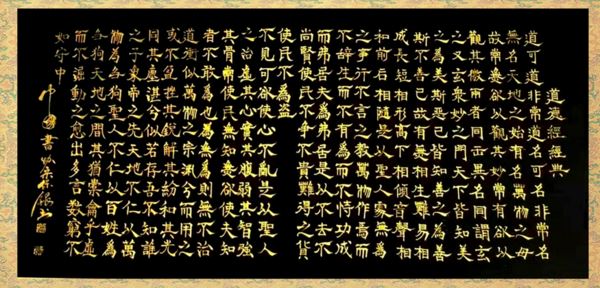 道德經經典
道可道非常道名可名非常名
無名天地之始有名萬物之母
故常無欲以觀其妙常有欲以
觀其徼兩者同出異名同謂玄
之又玄衆妙之門天下皆知美
之為美斯惡已皆知善之為善
斯不善已故有無相生難易相
成長短相形高下相傾音聲相
和前后相隨是以聖人處無為
之事行不言之教萬物作焉而
不辭生而不有為而不恃功成
而弗居夫為弗居是以不去不
尚賢使民不爭不貴難得之貨
使民不為盜
不見可欲使心不亂是以聖人
之治虛其心實其腹弱其智強
其骨常使民無知無欲使夫知
者不敢為也為無為則無不治
道衝似萬物之宗淵兮而用之
或不盈挫其銳解其紛和其光
同其塵湛兮似若存吾不知誰
之子象帝之先天地不仁以萬
物為芻狗聖人不仁以百姓為
芻狗天地之間其猶橐籥乎虛
而不淈動之愈出多言數窮不
如守中
中國書